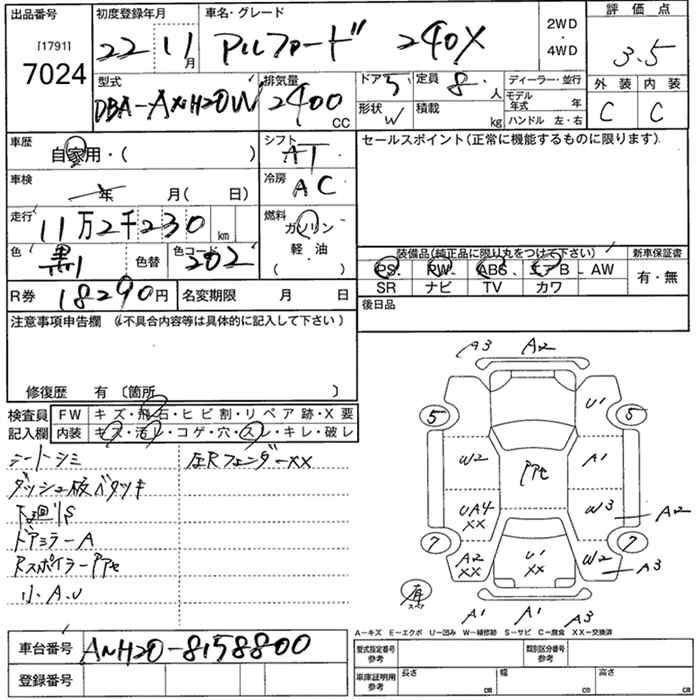 出品番号 初度登録年月 車名・グレード 2WD・4WD 評価点
[1791]
7024
22 11月 アルファード 240X
3.5
型式 排気量 ドア 5 定員 8 人 ディーラー・並行
DBA-ANH20W 2400 CC
形状 W 積載 kg
モデル年式 年
ハンドル 左・右
外装 内装
C C
車歴 自家用・( )
シフト AT
セールスポイント(正常に機能するものに限ります)
車検 年 月( 日)
冷房 AC
走行 11万2千230 km
燃料 ガソリン
軽・油
( )
色 黒 色替 色コード 202
装備品(純正品に限り丸をつけて下さい) 新車保証書
PS. PW. ABS. エアB. AW 有・無
SR ナビ TV カワ
R券 18290円 名変期限 月 日
後日品
注意事項申告欄 (不具合内容等は具体的に記入して下さい)
修復歴 有 〔箇所 〕
検査員 FW キズ・飛石・ヒビ割・リペア跡・X要
記入欄 内装 キズ・汚レ・コゲ・穴・スレ・キレ・破レ
シートシミ 左Rフェンダーxx
ダッシュ板ベタツキ
下廻りS
ドアミラーA
RスポイラーPPセ
小.A.U
A3 A2
5 U1 5
W2 PPセ A1
UA4 xx W3 A2
7 A2 xx U1 xx W2 7
A3
A1 A1 A3
A-キズ E-エクボ U-凹み W-補修跡 S-サビ C-腐食 XX-交換済
車台番号 ANH20-8158800
型式指定番号 参考 類別区分番号 参考
登録番号
車庫証明用 参考 長さ cm 幅 cm 高さ cm